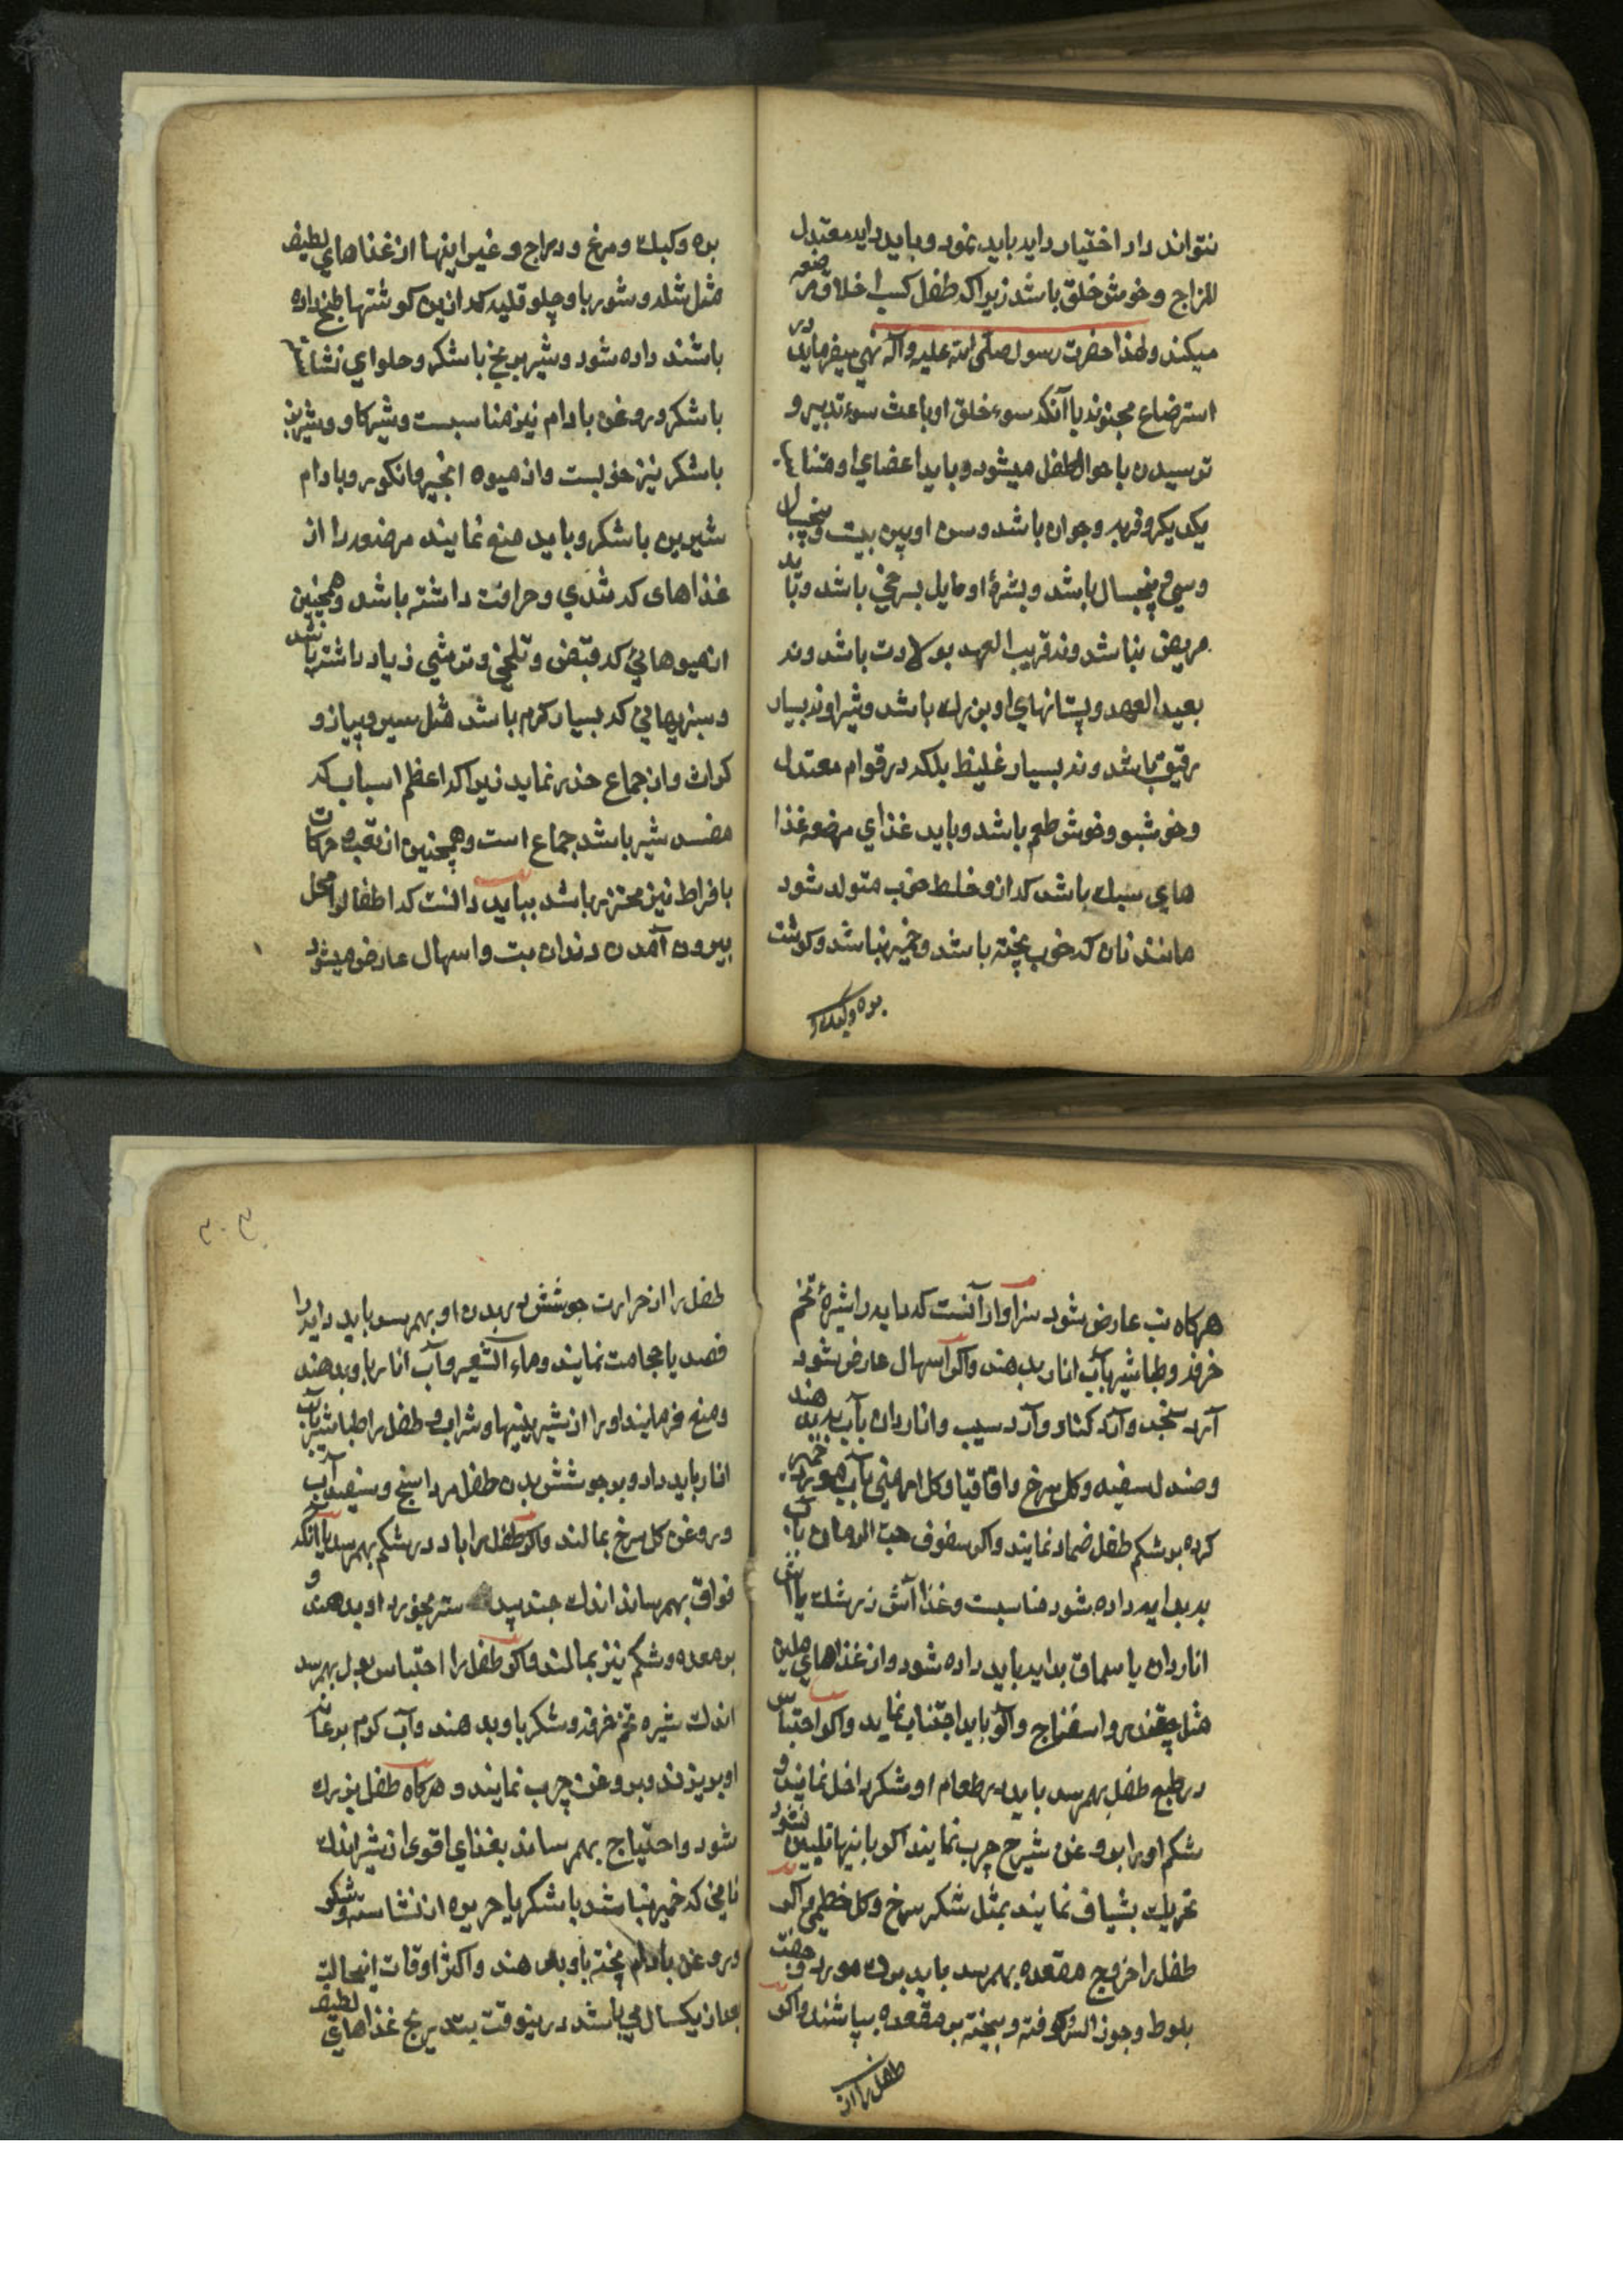 نتواند داد اختیار دایه باید نمود و باید دایه معتدل
المزاج و خوش خلق باشد زیرا که طفل کسب اخلاق مرضعه
میکند و لهذا حضرت رسول صلی الله علیه و آله نهی میفرمایند در
استرضاع مجنونه با آنکه سوء خلق او باعث سوء تدبیر و
نرسیدن باحوال طفل میشود و باید اعضای او متناسب
یکدیکر و فربه و جوان باشد و سن او بین بیست و پنجسال
و سی و پنجسال باشد و بشرهٔ او مایل بسرخی باشد و باید
مریض نباشد و نه قریب العهد بولادت باشد و نه
بعید العهد و پستانهای او بزرك باشد و شیر او نه بسیار
رقیق باشد و نه بسیار غلیظ بلکه در قوام معتدل
و خوشبو و خوش طعم باشد و باید غذای مرضعه غذا
های سبك باشد که از و خلط خوب متولد شود
مانند نان که خوب پخته باشد و خمیر نباشد و کوشت
بره و کبك و
بره و کبك و مرغ و دراج و غیر اینها از غذاهای لطیف
مثل شله و شوربا و چلو قلیه که از این کوشتها طبخ داده
باشند داده شود و شیر برنج با شکر و حلوای نشاسته
با شکر و روغن بادام نیز مناسبست و شیر کاو و شیر بز
با شکر نیز خوبست و از میوه انجیر و انکور و بادام
شیرین با شکر و باید منع نمایند مرضعه را از
غذاهای که تندی و حرافت داشته باشد و همچنین
از میوهایی که قبض و تلخی و ترشی زیاد داشته باشد
و سبزیهایی که بسیار کرم باشد مثل سیر و پیاز و
کراث و از جماع حذر نماید زیرا که اعظم اسباب که
مفسد شیر باشد جماع است و همچنین از تعب و حرکات
بافراط نیز محترز باشد بباید دانست که اطفال را محل
بیرون آمدن دندان تب و اسهال عارض میشود
هرکاه تب عارض شود سزاوار آنست که دایه را شیرهٔ تخم
خرفه و طباشیر بآب انار بدهند و اکر اسهال عارض شود
آرد سنجد و آرد کنار و آرد سیب و اناردان بآب به بدهند
و صندل سفید و کل سرخ و اقاقیا و کل ارمنی بآب مورد خمیر
کرده بر شکم طفل ضماد نمایند و اکر سفوف حب الرمان بآب
به بدایه داده شود مناسبست و غذا آش زرشك یا آش
اناردان یا سماق بدایه باید داده شود و از غذاهای ملین
مثل چقندر و اسفناج و آلو باید اجتناب نماید و اکر احتباس
در طبع طفل بهم رسد باید در طعام او شکر داخل نمایند و
شکم او را بروغن شیرج چرب نمایند اکر باینها تلیین نشود
تحریك بشیاف نمایند بمثل شکر سرخ و کل خطمی و اکر
طفل را خروج مقعده بهم رسد باید برك مورد و جفت
بلوط و جوز السرو کوفته و بیخته بر مقعده بپاشند و اکر
طفل را از
طفل را از حرارت جوشش در بدن او بهم رسد باید دایه را
فصد یا حجامت نمایند و ماء الشعیر و آب انار باو بدهند
و منع فرمایند او را از شیرینیها و شراب و طفل را طباشیر بآب
انار باید داد و بر جوشش بدن طفل مرداسنج و سفیداب
و روغن کل سرخ بمالند و اکر طفل را باد در شکم بهم رسد یا آنکه
فواق بهم رساند اندك جندبیدستر بخورد او بدهند و
بر معده و شکم نیز بمالند و اکر طفل را احتباس بول بهم رسد
اندك شیره تخم خرفه و شکر باو بدهند و آب کرم بر عانه
او بریزند و بروغن چرب نمایند و هرکاه طفل بزرك
شود و احتیاج بهم رساند بغذای اقوی از شیر اندك
نانی که خمیر نباشد با شکر یا حریره از نشاسته و شکر
و روغن بادام پخته باو بدهند و اکثر اوقات اینحالت
بعد از یکسال می باشد در ینوقت بتدریج غذاهای لطیف
۳۰۳